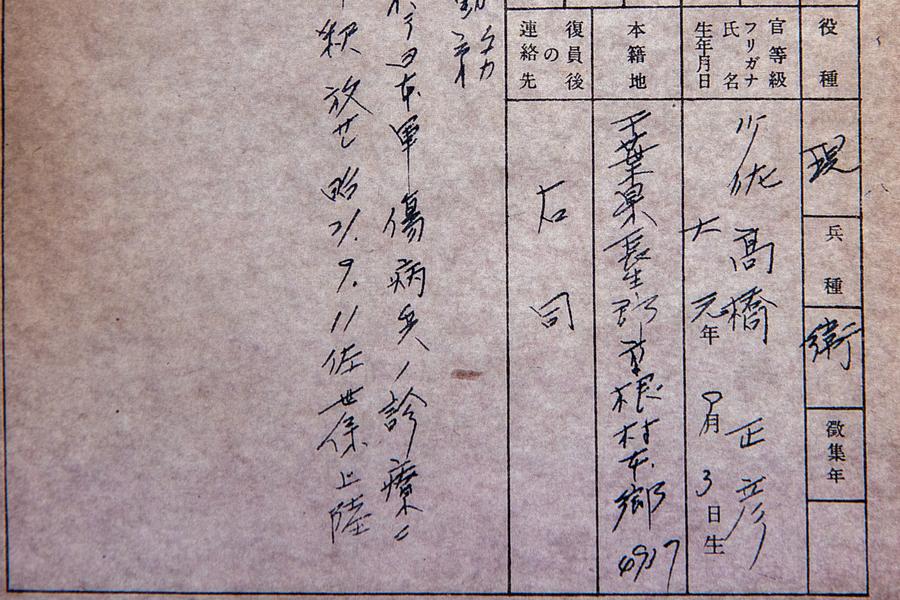 役種 現
兵種 衛
徴集年
官等級 少佐
フリガナ
氏名 高橋 正彦
生年月日 大元年 9月 3日生
本籍地 千葉県長生郡 根村本郷
復員後の連絡先 右同
日本軍傷病兵ノ診療
釈放セ 昭21.9.11佐世保上陸